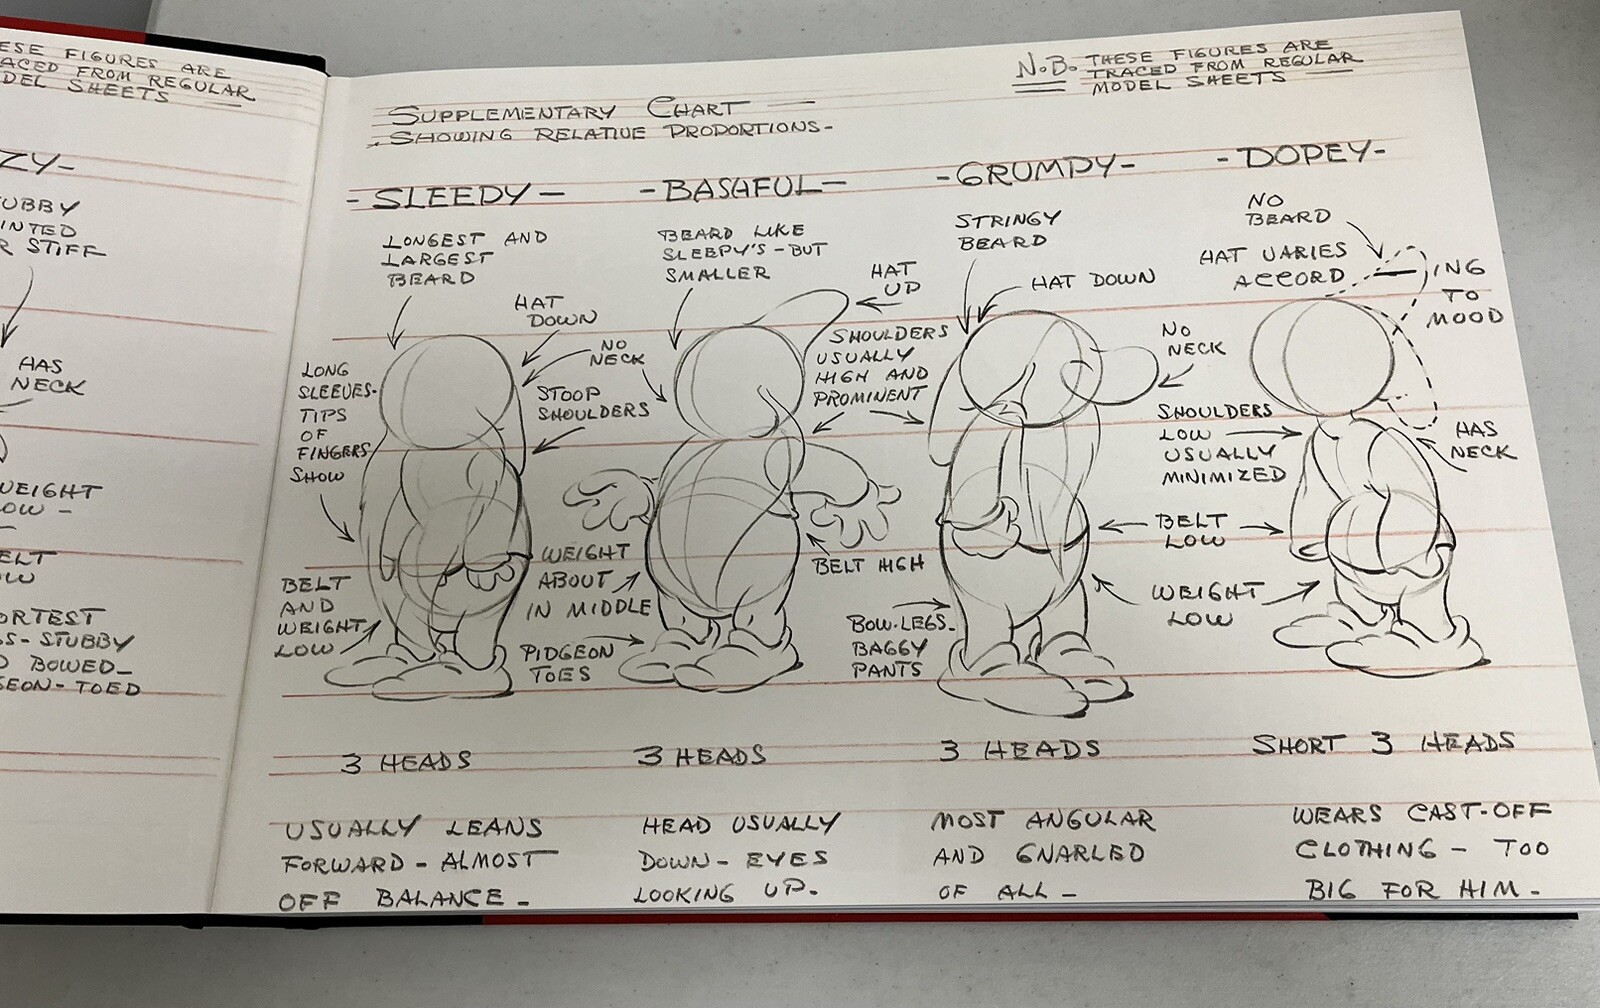 ESE FIGURES ARE
ACED FROM REGULAR
DEL SHEETS
ZY-
UBBY
INTED
R STIFF
HAS
NECK
WEIGHT
OW -
ELT
OW
ORTEST
GS - STUBBY
D BOWED-
GEON-TOED
N.B. THESE FIGURES ARE
TRACED FROM REGULAR
MODEL SHEETS
SUPPLEMENTARY CHART
SHOWING RELATIVE PROPORTIONS-
- SLEEPY -
LONGEST AND
LARGEST
BEARD
HAT
DOWN
NO
NECK
STOOP
SHOULDERS
LONG
SLEEVES-
TIPS
OF
FINGERS
SHOW
BELT
AND
WEIGHT
LOW
3 HEADS
USUALLY LEANS
FORWARD - ALMOST
OFF BALANCE -
- BASHFUL -
BEARD LIKE
SLEEPY'S - BUT
SMALLER
HAT
UP
SHOULDERS
USUALLY
HIGH AND
PROMINENT
WEIGHT
ABOUT
IN MIDDLE
BELT HIGH
PIDGEON
TOES
3 HEADS
HEAD USUALLY
DOWN - EYES
LOOKING UP.
- GRUMPY -
STRINGY
BEARD
HAT DOWN
NO
NECK
BELT
LOW
WEIGHT
LOW
BOW-LEGS-
BAGGY
PANTS
3 HEADS
MOST ANGULAR
AND GNARLED
OF ALL -
- DOPEY -
NO
BEARD
HAT VARIES
ACCORD ING
TO
MOOD
SHOULDERS
LOW
USUALLY
MINIMIZED
HAS
NECK
SHORT 3 HEADS
WEARS CAST-OFF
CLOTHING - TOO
BIG FOR HIM -